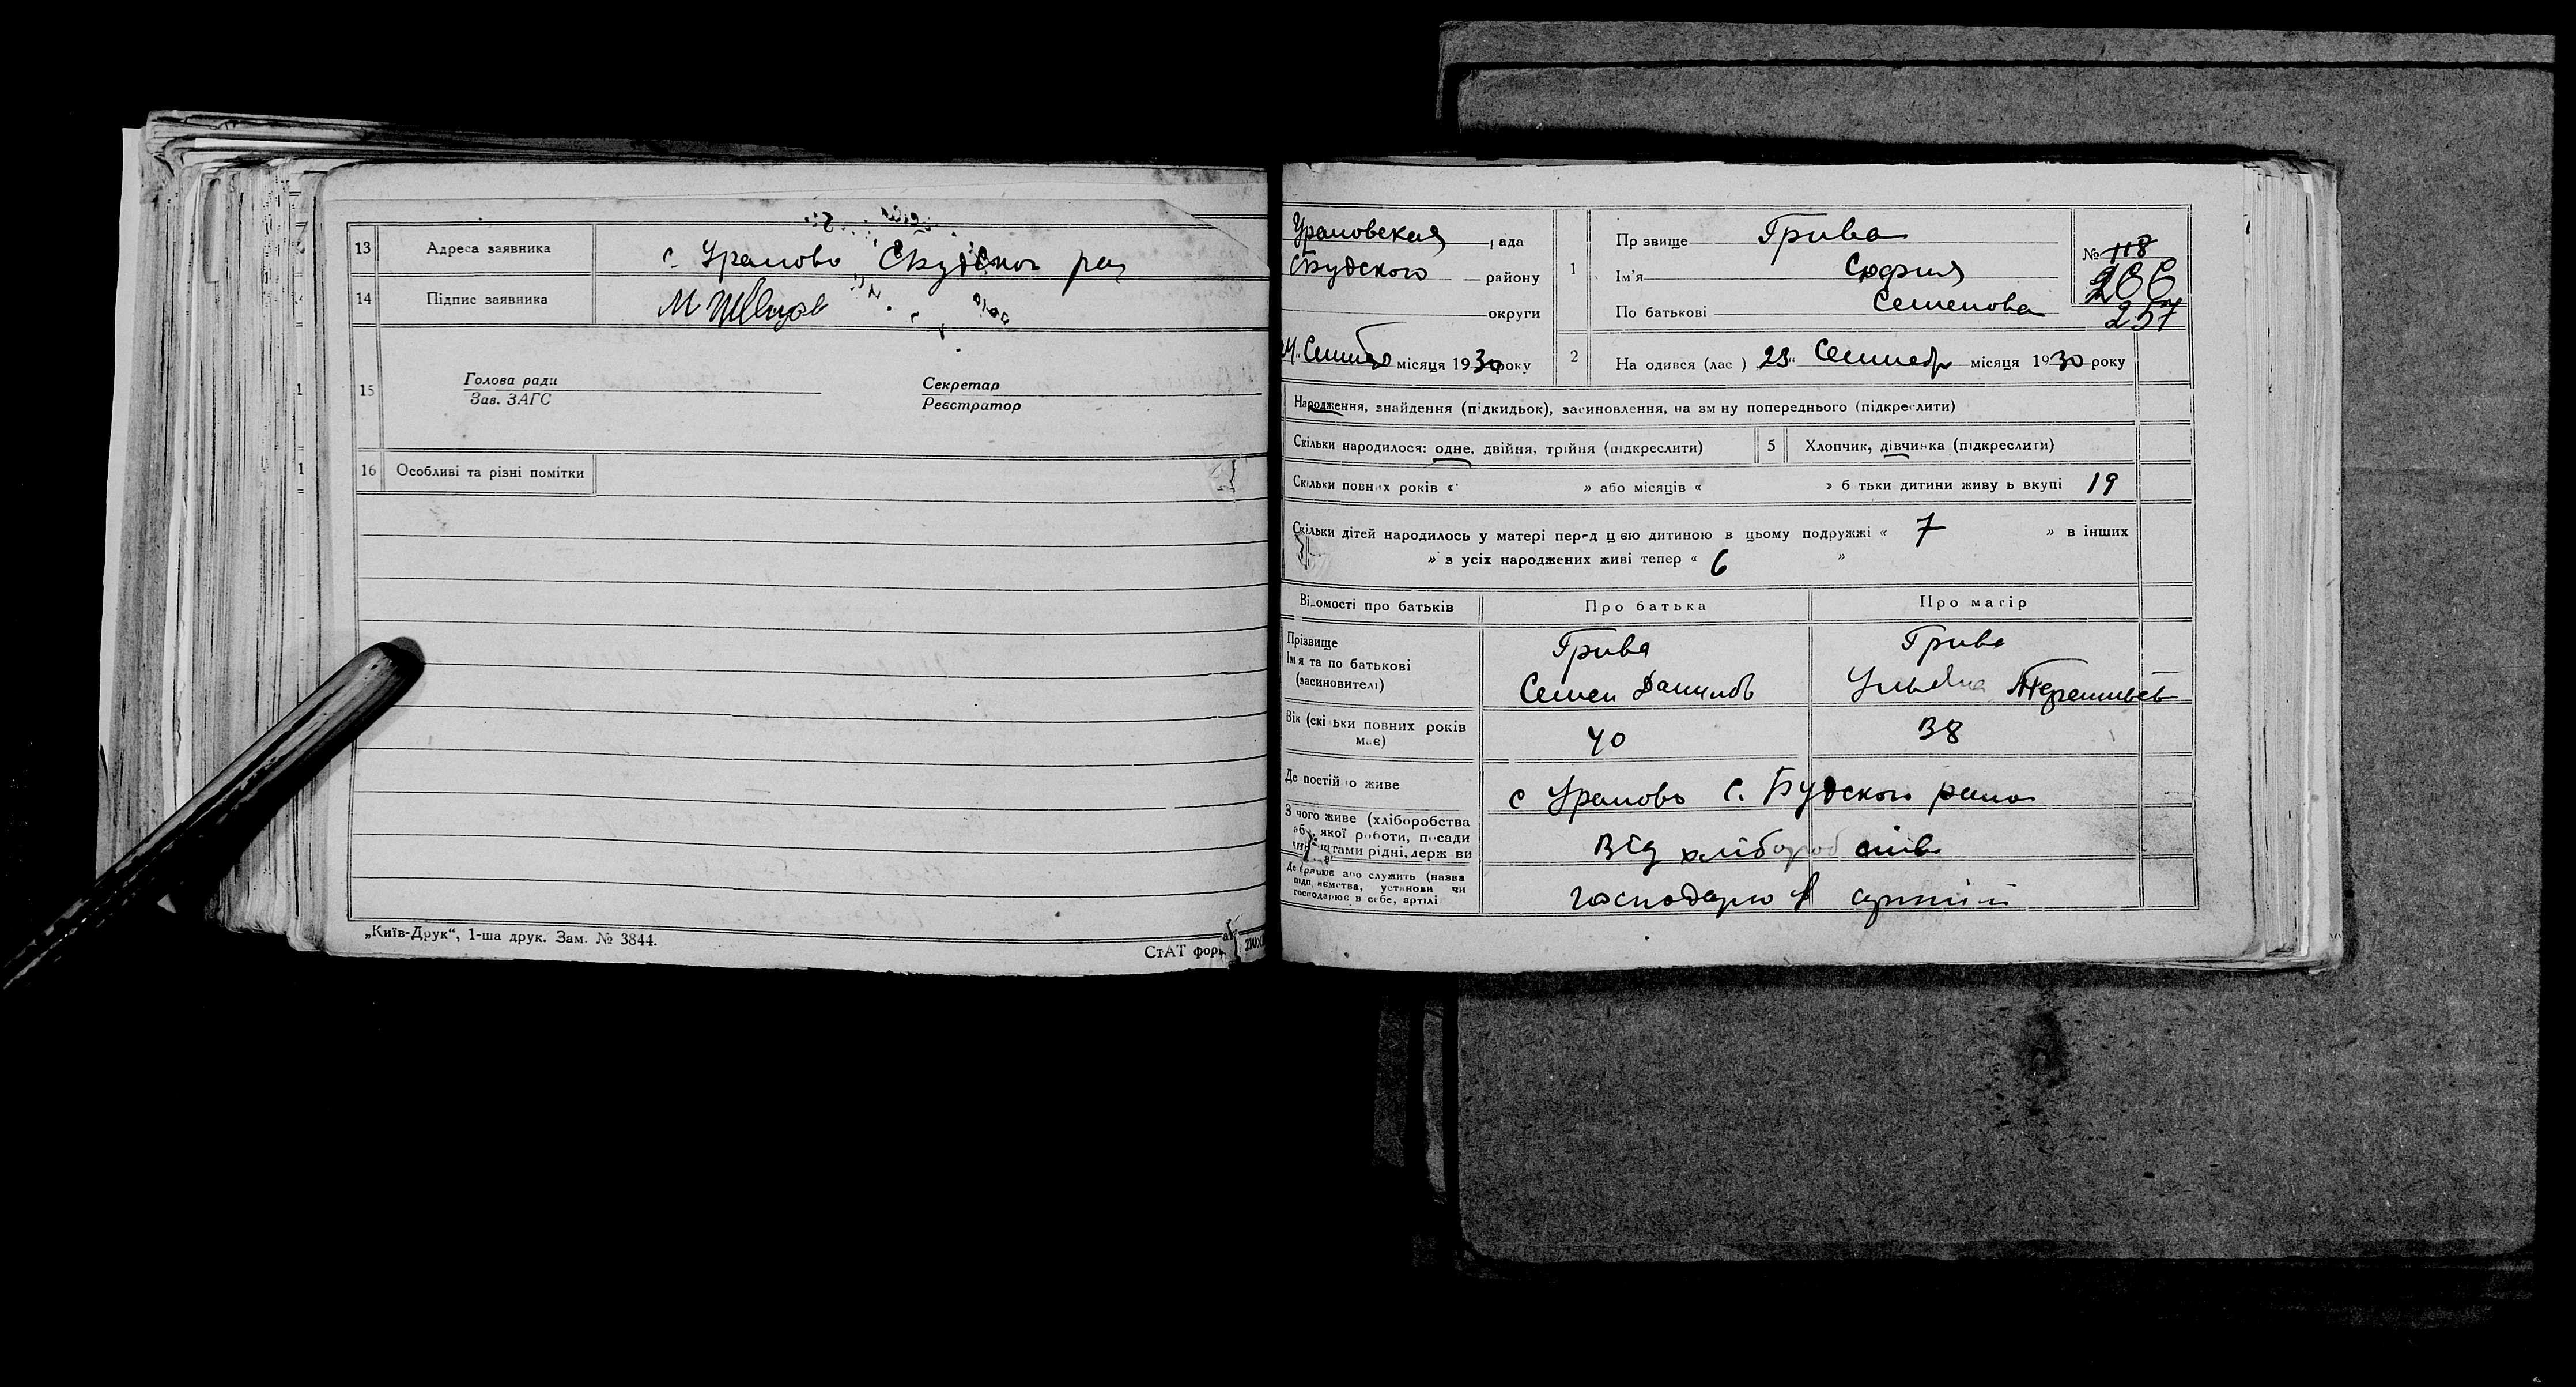 13 Адреса заявника с. Урамово СБудског рай
14 Підпис заявника М Швыдов
15 Голова ради Секретар
Зав. ЗАГС Реєстратор
16 Особливі та різні помітки
„Київ-Друк“, 1-ша друк. Зам. № 3844.
СтАТ форм
Урамовская рада
СБудского району
округи
1 Прзвище Грива
Ім'я София
По батькові Семенова
№ 118
266
257
місяця 1930 року
2 На одився (лас ) 23 „ Сентебр місяця 1930 року
Народження, знайдення (підкидьок), засиновлення, на зміну попереднього (підкреслити)
Скільки народилося: одне, двійня, трійня (підкреслити)
5 Хлопчик, дівчинка (підкреслити)
Скільки повних років « » або місяців « » батьки дитини живуть вкупі 19
Скільки дітей народилось у матері перед цією дитиною в цьому подружжі « 7 » в інших
» з усіх народжених живі тепер « 6 »
Відомості про батьків Про батька Про матір
Прізвище Грива Грива
Імя та по батькові
(засновителі) Семен Данилов Ульяна Терентьев
Вік (скільки повних років 40 38
має)
Де постійно живе с Урамово С. Будского раион
З чого живе (хліборобства
або якої роботи, посади Від хлібороб ств
штами рідні, держ ви
Де працює або служить (назва
підприємства, установи чи господарю в
господарює в себе, артілі